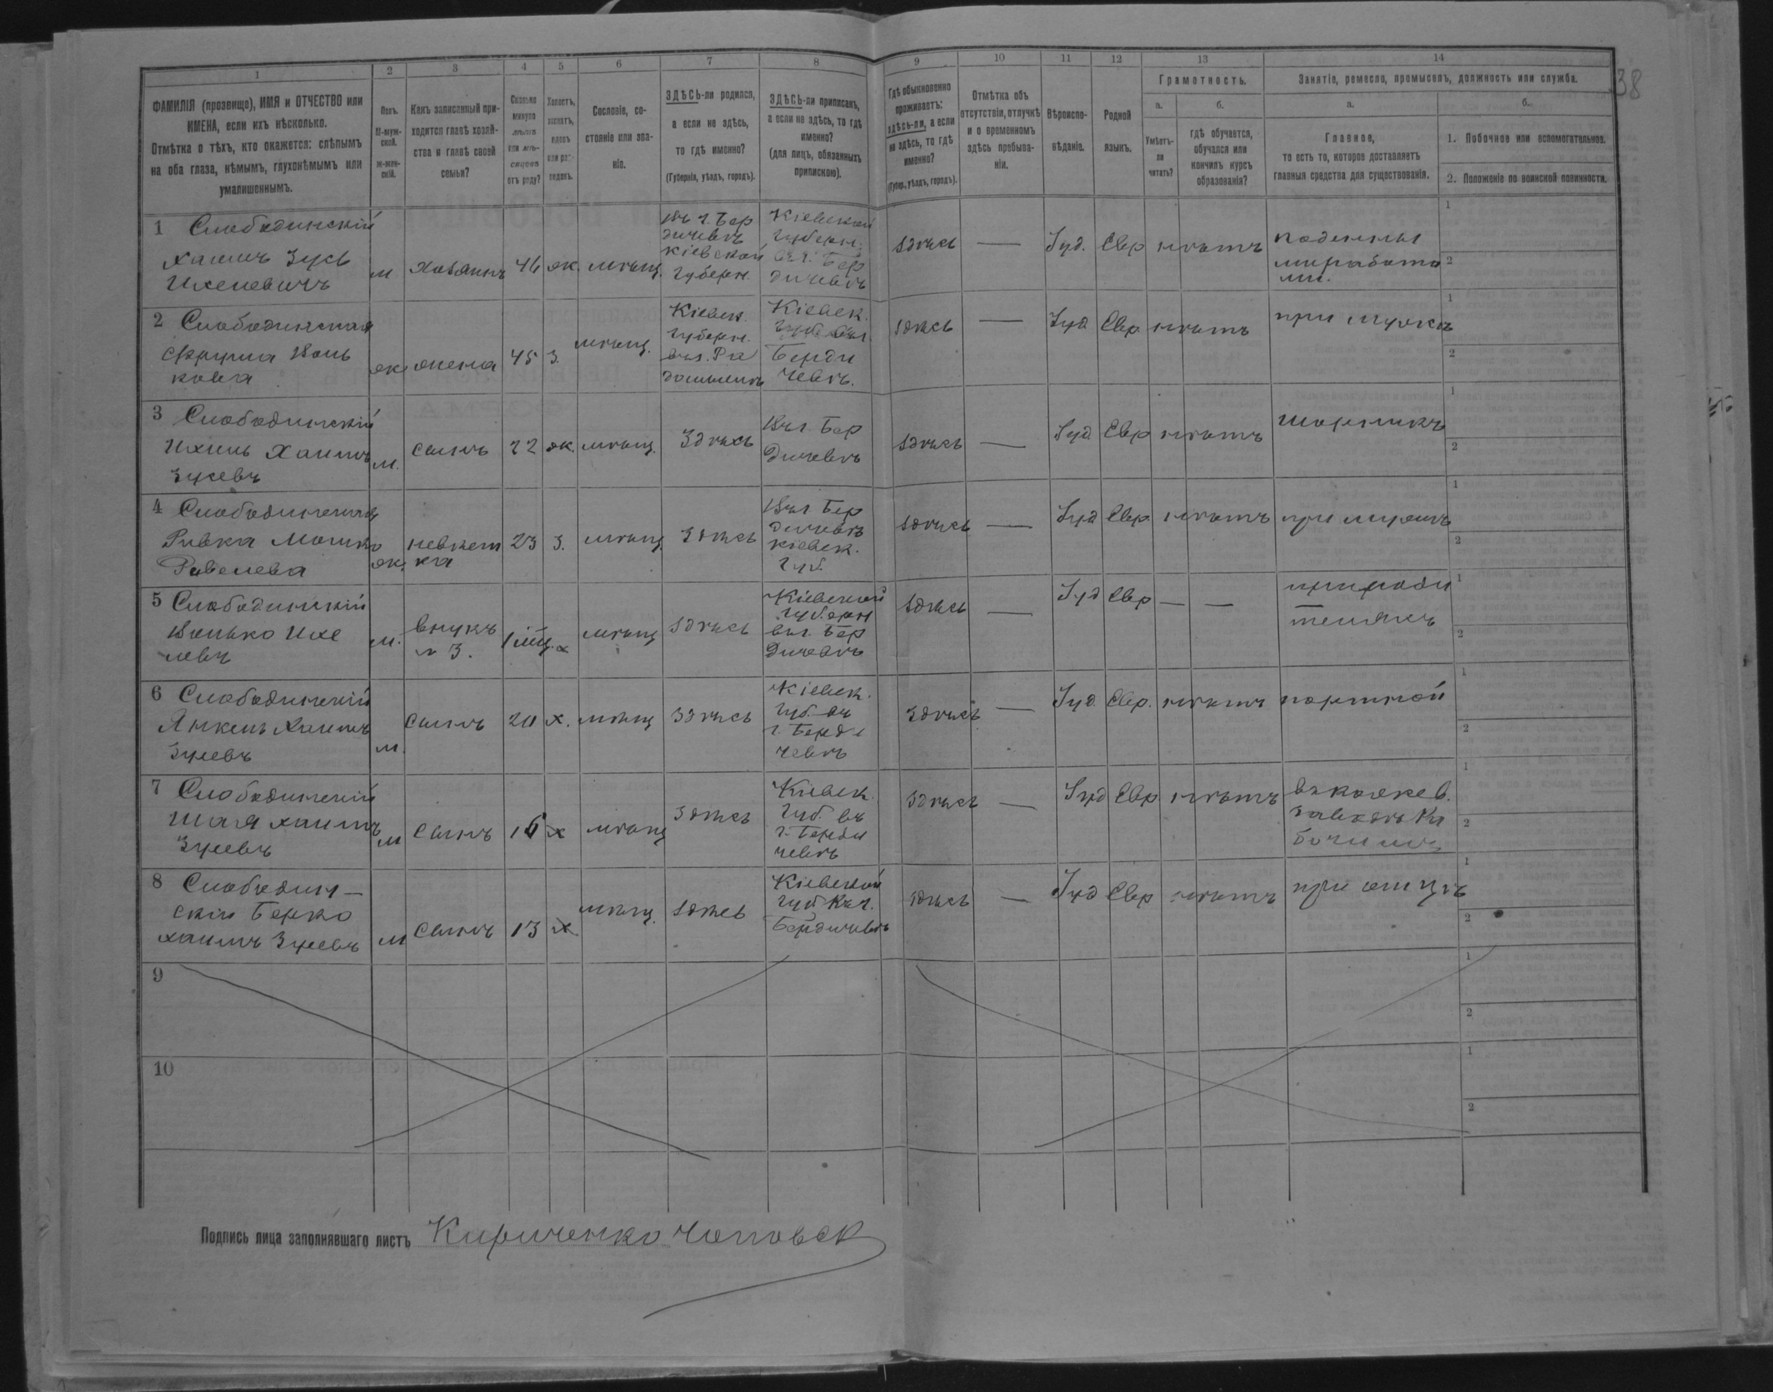 38
1
2
3
4
5
6
7
8
9
10
11
12
13
14
ФАМИЛІЯ (прозвище), ИМЯ и ОТЧЕСТВО или
ИМЕНА, если ихъ нѣсколько.
Отмѣтка о тѣхъ, кто окажется: слѣпымъ
на оба глаза, нѣмымъ, глухонѣмымъ или
умалишеннымъ.
Полъ.
М-муж-
ской.
Ж-жен-
скій.
Какъ записанный при-
ходится главѣ хозяй-
ства и главѣ своей
семьи?
Сколько
минуло
отъ роду?
Холостъ,
женатъ,
вдовъ
Сословіе, со-
стояніе или зва-
ніе.
ЗДѢСЬ-ли родился,
а если не здѣсь,
то гдѣ именно?
(Губернія, уѣздъ, городъ).
ЗДѢСЬ-ли приписанъ,
а если не здѣсь, то гдѣ
именно?
(для лицъ, обязанныхъ
припискою).
Гдѣ обыкновенно
проживаетъ:
здѣсь-ли, а если
не здѣсь, то гдѣ
именно?
(Губер., уѣздъ, городъ).
Отмѣтка объ
отсутствіи, отлучкѣ
и о временномъ
здѣсь пребыва-
ніи.
Вѣроиспо-
вѣданіе.
Родной
языкъ.
Грамотность.
а.
б.
Умѣетъ-
ли
читать?
гдѣ обучается,
обучался или
кончилъ курсъ
образованія?
Занятіе, ремесло, промыселъ, должность или служба.
а.
б.
Главное,
то есть то, которое доставляетъ
главныя средства для существованія.
1. Побочное или вспомогательное.
2. Положеніе по воинской повинности.
1 Слободинскій
Хаимъ Зусь
Ихелевичъ
м
хозяинъ
46
ж.
мѣщ.
въ г. Бер
дичевѣ
Кіевской
губерн.
Кіевской
губерн.
въ г. Бер
дичевѣ
здѣсь
—
Іуд.
Евр
нѣтъ
поденны
ми работа
ми.
2 Слободинская
Вонь
кова
ж.
жена
45
З.
мѣщ.
Кіевск.
губерн.
въ г. Ра
домыслѣ
Кіевск.
губ. въ г.
Берди
чевѣ.
здѣсь
—
Іуд
Евр
нѣтъ
при мужѣ
3 Слободинскій
Ихиль Хаимъ
Зусевъ
м.
сынъ
22
ж.
мѣщ.
Здѣсь
въ г. Бер
дичевѣ
здѣсь
—
Іуд
Евр
нѣтъ
шорникъ
4 Слободинская
Ривка Мошко
ж.
невѣст
ка
23
З.
мѣщ.
Здѣсь
въ г. Бер
дичевѣ
Кіевск.
губ.
здѣсь
—
Іуд
Евр
нѣтъ
при мужѣ
5 Слободинскій
Вонько Ихе
левъ
м.
внукъ
1 мѣс.
х
мѣщ
здѣсь
Кіевской
губерн
въ г. Бер
дичевѣ
здѣсь
—
Іуд
Евр
— —
при роди
теляхъ
6 Слободинскій
Янкель Хаимъ
Зусевъ
м.
сынъ
20
х.
мѣщ
Здѣсь
Кіевск.
губ. въ
г. Берди
чевѣ
Здѣсь
—
Іуд
Евр.
нѣтъ
портной
7 Слободинскій
Шая Хаимъ
Зусевъ
м
сынъ
16
х
мѣщ
Здѣсь
Кіевск.
губ. въ
г. Берди
чевѣ
Здѣсь
—
Іуд
Евр
нѣтъ
въ кожев.
заводѣ Ра
бочимъ
8 Слободин—
скій Берко
Хаимъ Зусевъ
м
сынъ
13
х
мѣщ.
здѣсь
Кіевской
губ въ г.
Бердичевѣ
здѣсь
—
Іуд
Евр
нѣтъ
при отцѣ
9
10
Подпись лица заполнявшаго листъ Кириченко